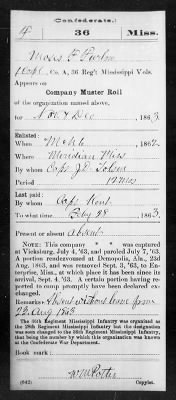 Confederate.
36 Miss.
Moses F
Co. A, 36 Reg't Mississippi Vols.
Appears on
Company Muster Roll
of the organization named above,
for Nov & Dec, 1863.
Enlisted:
When Mch 6, 1862.
Where Meridian Miss
By whom Capt J D
Period 12 mos
Last paid:
By whom Capt
To what time Feby 28, 1863.
Present or absent Absent
NOTE: This company * * was captured
at Vicksburg, July 4, '63, and paroled July 7, '63.
A portion rendezvoused at Demopolis, Ala., Aug.
23d, 1863, and was removed Sept. 3, '63, to Ent-
erprise, Miss., at which place it has been since its
arrival, Sept. 4, '63. A certain portion having re-
ported to camp promptly have been declared ex-
changed.
Remarks: Absent without leave from
23 Aug 1863
The 36th Regiment Mississippi Infantry was
Regiment Mississippi Infantry but the designation
was soon changed to the 36th Regiment Mississippi Infantry,
that being the number by which this organization was known
at the Confederate War Department.
Book mark:
(642) Copyist.